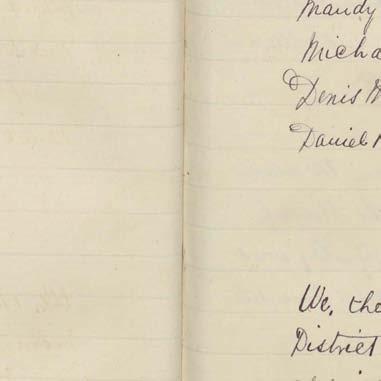 Mandy
Micha
Denis
Daniel
We, the
District